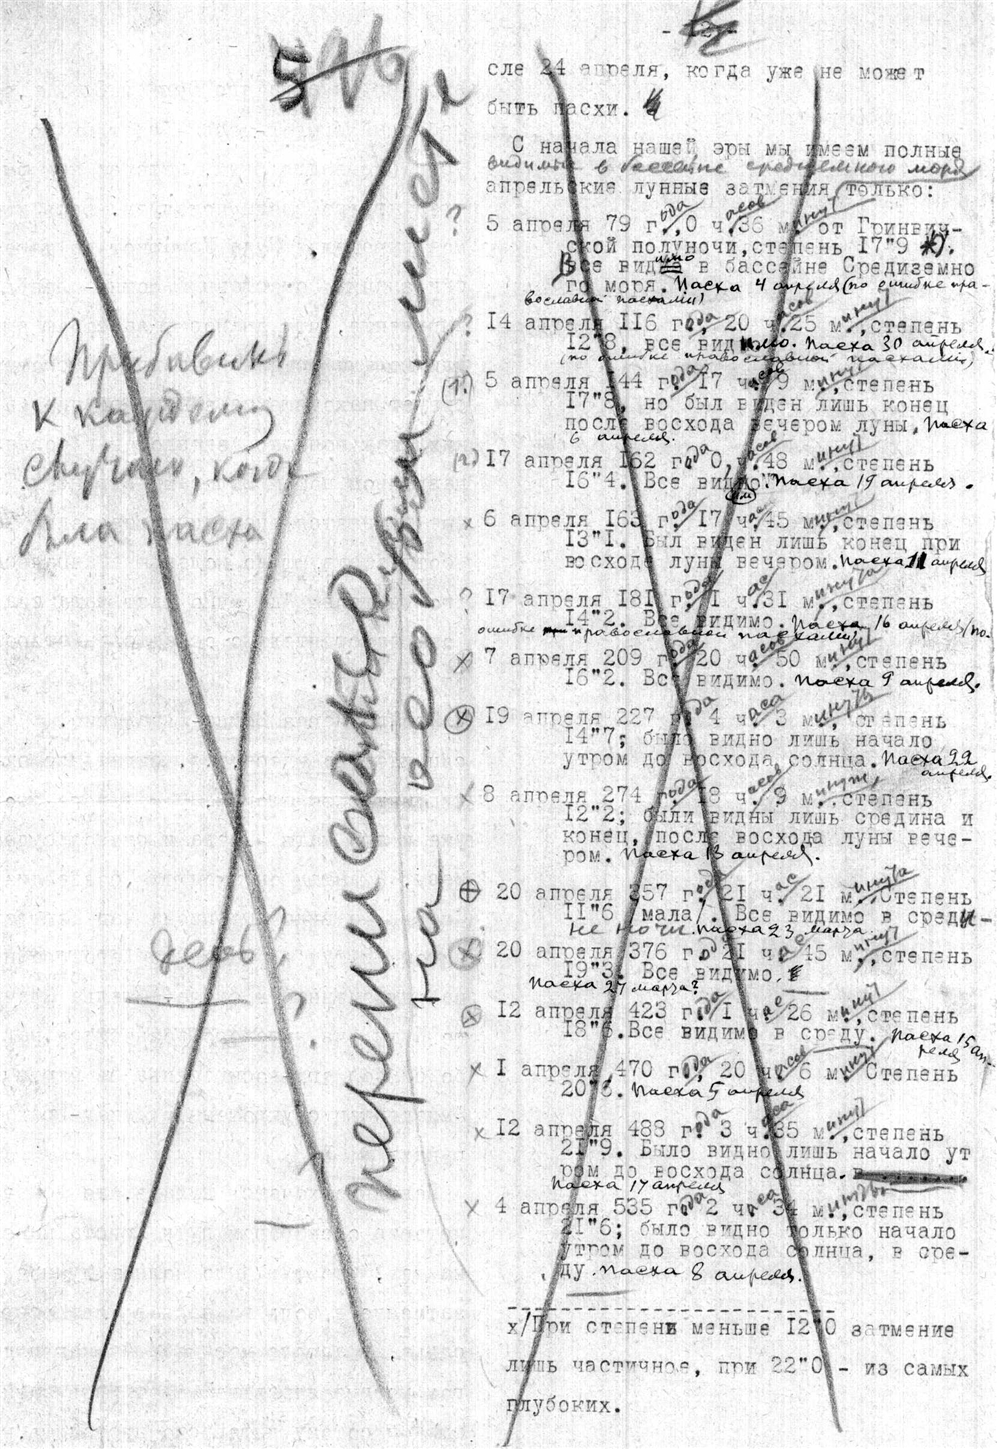 196
5
- 12 -
сле 24 апреля, когда уже не может
быть пасхи.
С начала нашей эры мы имеем полные
видимые в бассейне средиземного моря
апрельские лунные затмения только:
? 5 апреля 79 года, 0 часов 36 минут от Гринвич-
ской полуночи, степень 17"9 х).
Все видимо в бассейне Средиземно
го моря. Пасха 4 апреля (по ошибке пра-
вославной пасхалии)
? 14 апреля 116 года, 20 часов 25 минут, степень
12"8, все видимо. Пасха 30 апреля.
(по ошибке православной пасхалии)
(1.) 5 апреля 144 года 17 часов 9 минут, степень
17"8, но был виден лишь конец
после восхода вечером луны, Пасха
6 апреля.
(2) 17 апреля 162 года 0, часов 48 минут, степень
16"4. Все видимо. Пасха 19 апреля.
х 6 апреля 163 г. 17 час 45 минут, степень
13"1. Был виден лишь конец при
восходе луны вечером. Пасха 11 апреля
? 17 апреля 181 года 1 час 31 минута, степень
14"2. Все видимо. Пасха 16 апреля (по
ошибке православной пасхалии)
х 7 апреля 209 года 20 часов 50 минут, степень
16"2. Все видимо. Пасха 9 апреля.
х 19 апреля 227 года 4 часа 3 минуты, степень
14"7; было видно лишь начало
утром до восхода солнца. Пасха 22
апреля.
х 8 апреля 274 года 18 часов 9 минут, степень
12"2; были видны лишь средина и
конец, после восхода луны вече-
ром. Пасха 13 апреля.
⊕ 20 апреля 357 года 21 час 21 минута. Степень
11"6 /мала/. Все видимо в среди-
не ночи. Пасха 23 марта
х 20 апреля 376 года 21 час 45 минут, степень
19"3. Все видимо.
Пасха 27 марта?
х 12 апреля 423 года 1 час 26 минут, степень
18"6. Все видимо в среду. Пасха 15 ап-
реля
х 1 апреля 470 года, 20 часов 6 минут Степень
20"8. Пасха 5 апреля
х 12 апреля 488 года 3 часа 35 минут, степень
21"9. Было видно лишь начало ут
ром до восхода солнца.
Пасха 17 апреля
х 4 апреля 535 года 2 часа 34 минуты, степень
21"6; было видно только начало
утром до восхода солнца, в сре-
ду. Пасха 8 апреля.
х/При степени меньше 12"0 затмение
лишь частичное, при 22"0 - из самых
глубоких.
Прибавить
к каждому
случаю, когда
была пасха
переписать
на